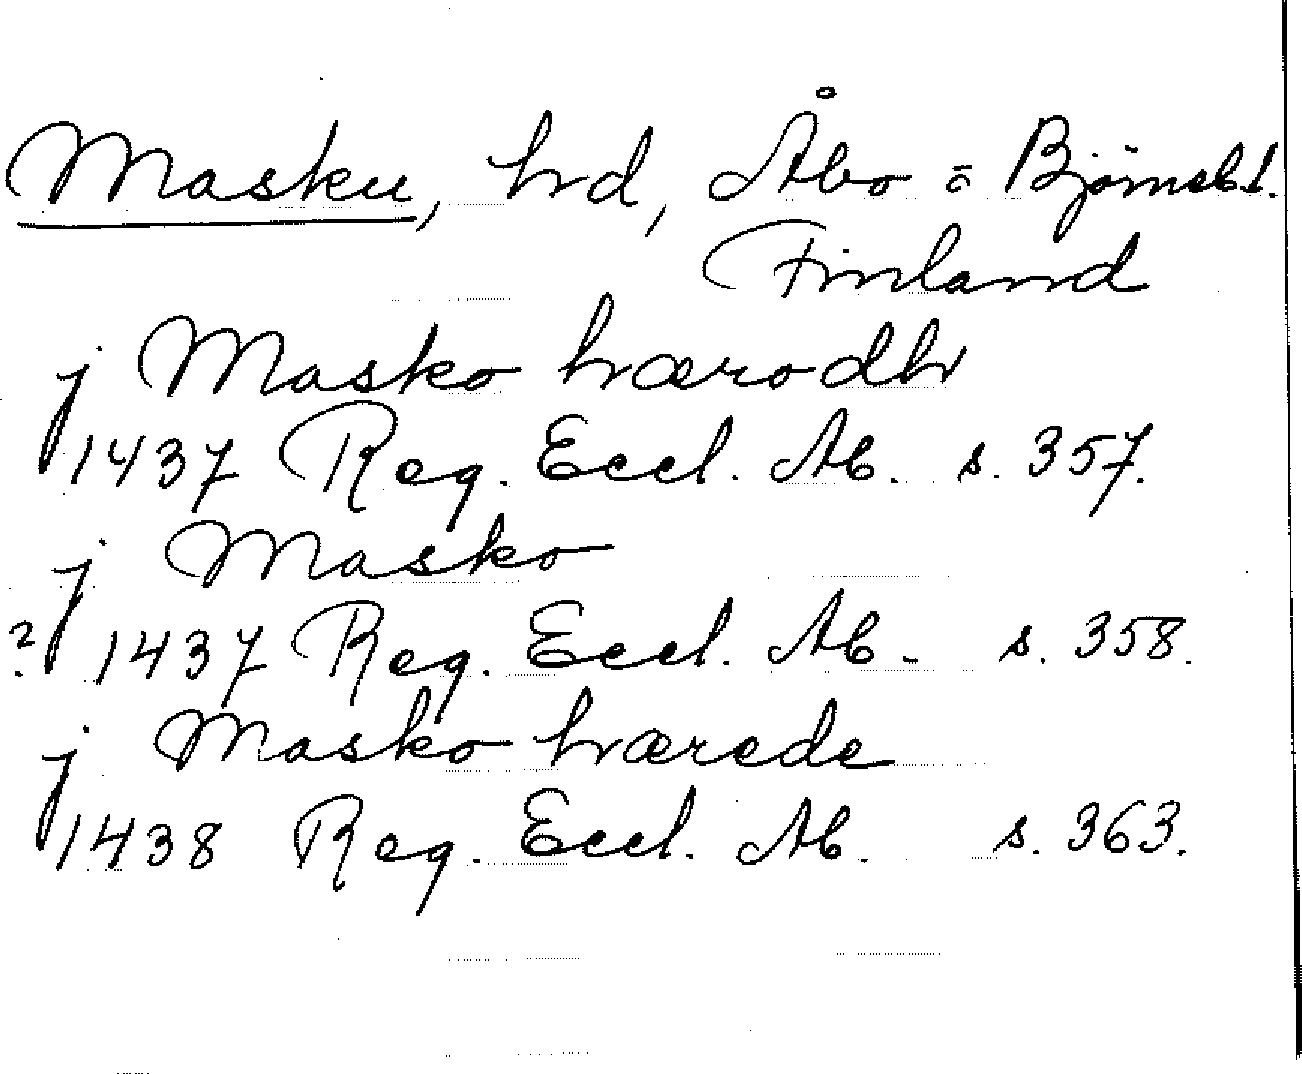 Masku, hd, Åbo = Björnebl.
Finland
j Masko hærodh
1437 Reg. Eccl. Ab. s. 357.
j Masko
? 1437 Reg. Eccl. Ab. s. 358.
j Masko hærede
1438 Reg. Eccl. Ab. s. 363.